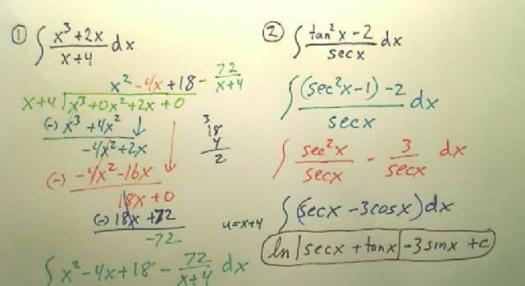 ① ∫ x³+2x / x+4 dx
x² -4x +18 - 72/x+4
x+4 √ x³+0x²+2x+0
(-) x³ +4x²
-4x²+2x
(-) -4x²-16x
18x +0
(-) 18x +72
-72
3
18
4
2
u=x+4
∫ x²-4x+18 - 72/x+4 dx
② ∫ tan²x -2 / secx dx
∫ (sec²x-1) -2 / secx dx
∫ sec²x / secx - 3 / secx dx
∫ (secx -3cosx)dx
ln|secx + tanx| -3sinx +c